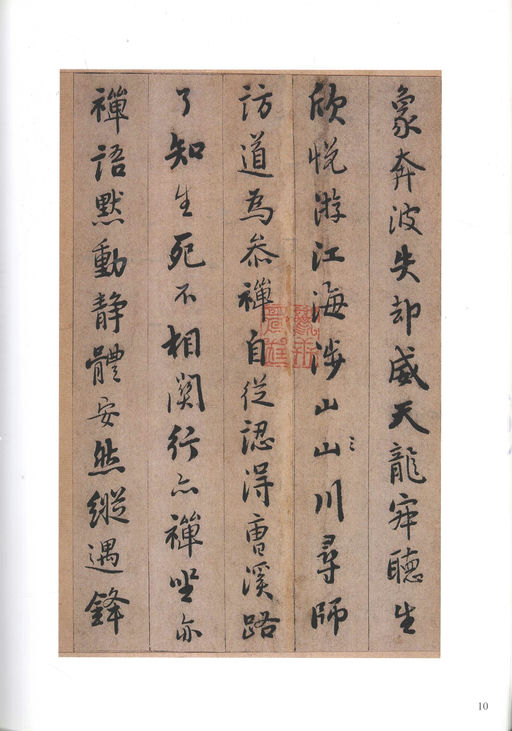 象奔波失却威天龍寂聽生
欣悅游江海涉山山川尋師
訪道為叅禪自從認得曹溪路
了知生死不相關行亦禪坐亦
禪語默動靜體安然縱遇鋒
10